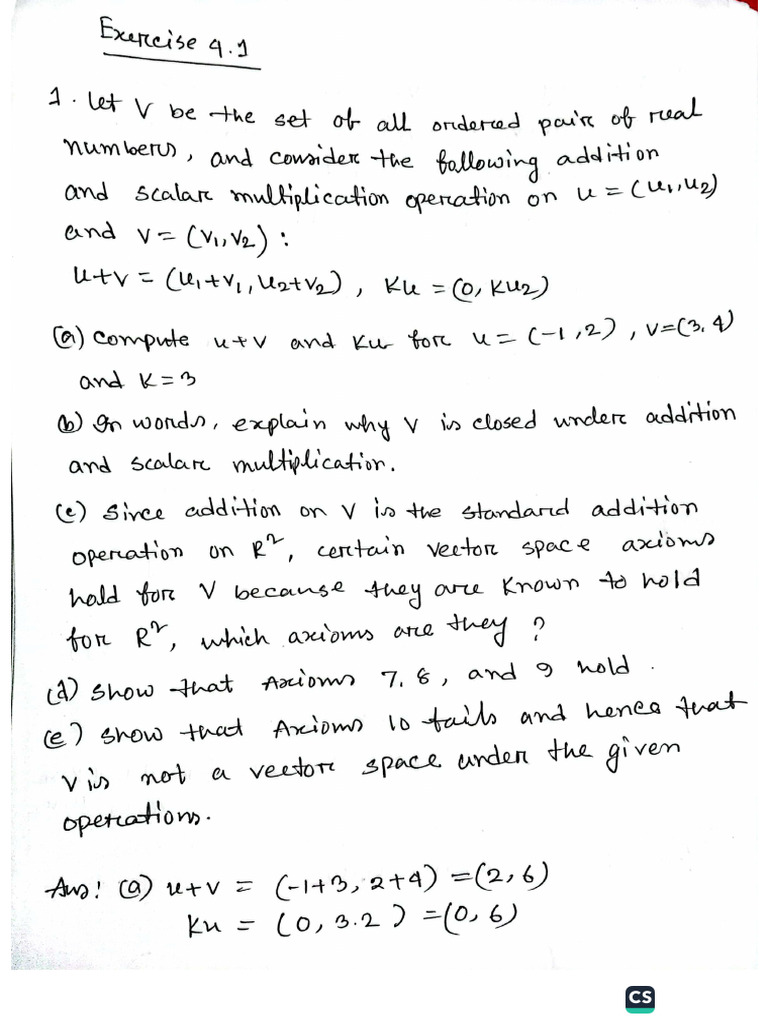 Exercise 4.1
1. Let V be the set of all ordered pair of real
numbers, and consider the following addition
and scalar multiplication operation on u = (u₁,u₂)
and v = (v₁,v₂) :
u+v = (u₁+v₁, u₂+v₂), Ku = (0, Ku₂)
(a) compute u+v and Ku for u = (-1,2), v=(3,4)
and K=3
(b) In words, explain why V is closed under addition
and scalar multiplication.
(c) Since addition on V is the standard addition
operation on R², certain vector space axioms
hold for V because they are known to hold
for R², which axioms are they ?
(d) Show that Axioms 7, 8, and 9 hold.
(e) Show that Axioms 10 fails and hence that
V is not a vector space under the given
operations.
Ans: (a) u+v = (-1+3, 2+4) = (2,6)
Ku = (0, 3.2) = (0, 6)
CS